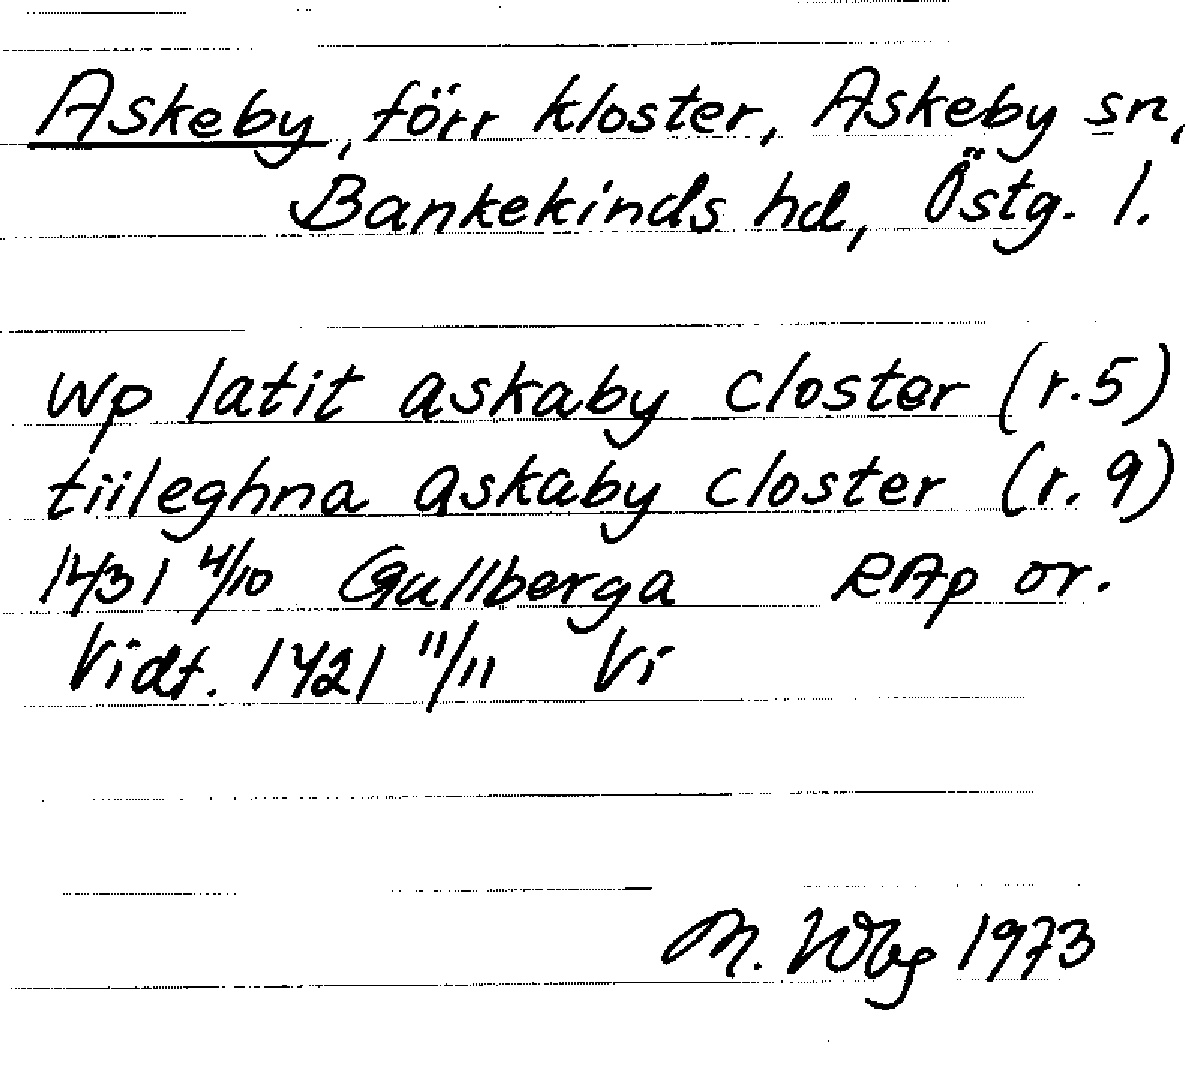 Askeby, förr kloster, Askeby sn,
Bankekinds hd, Östg. l.
wp latit askaby closter (r.5)
tiileghna askaby closter (r.9)
1431 4/10 Gullberga RAp or.
Vidt. 1421 11/11 Vi
M. Wbg 1973